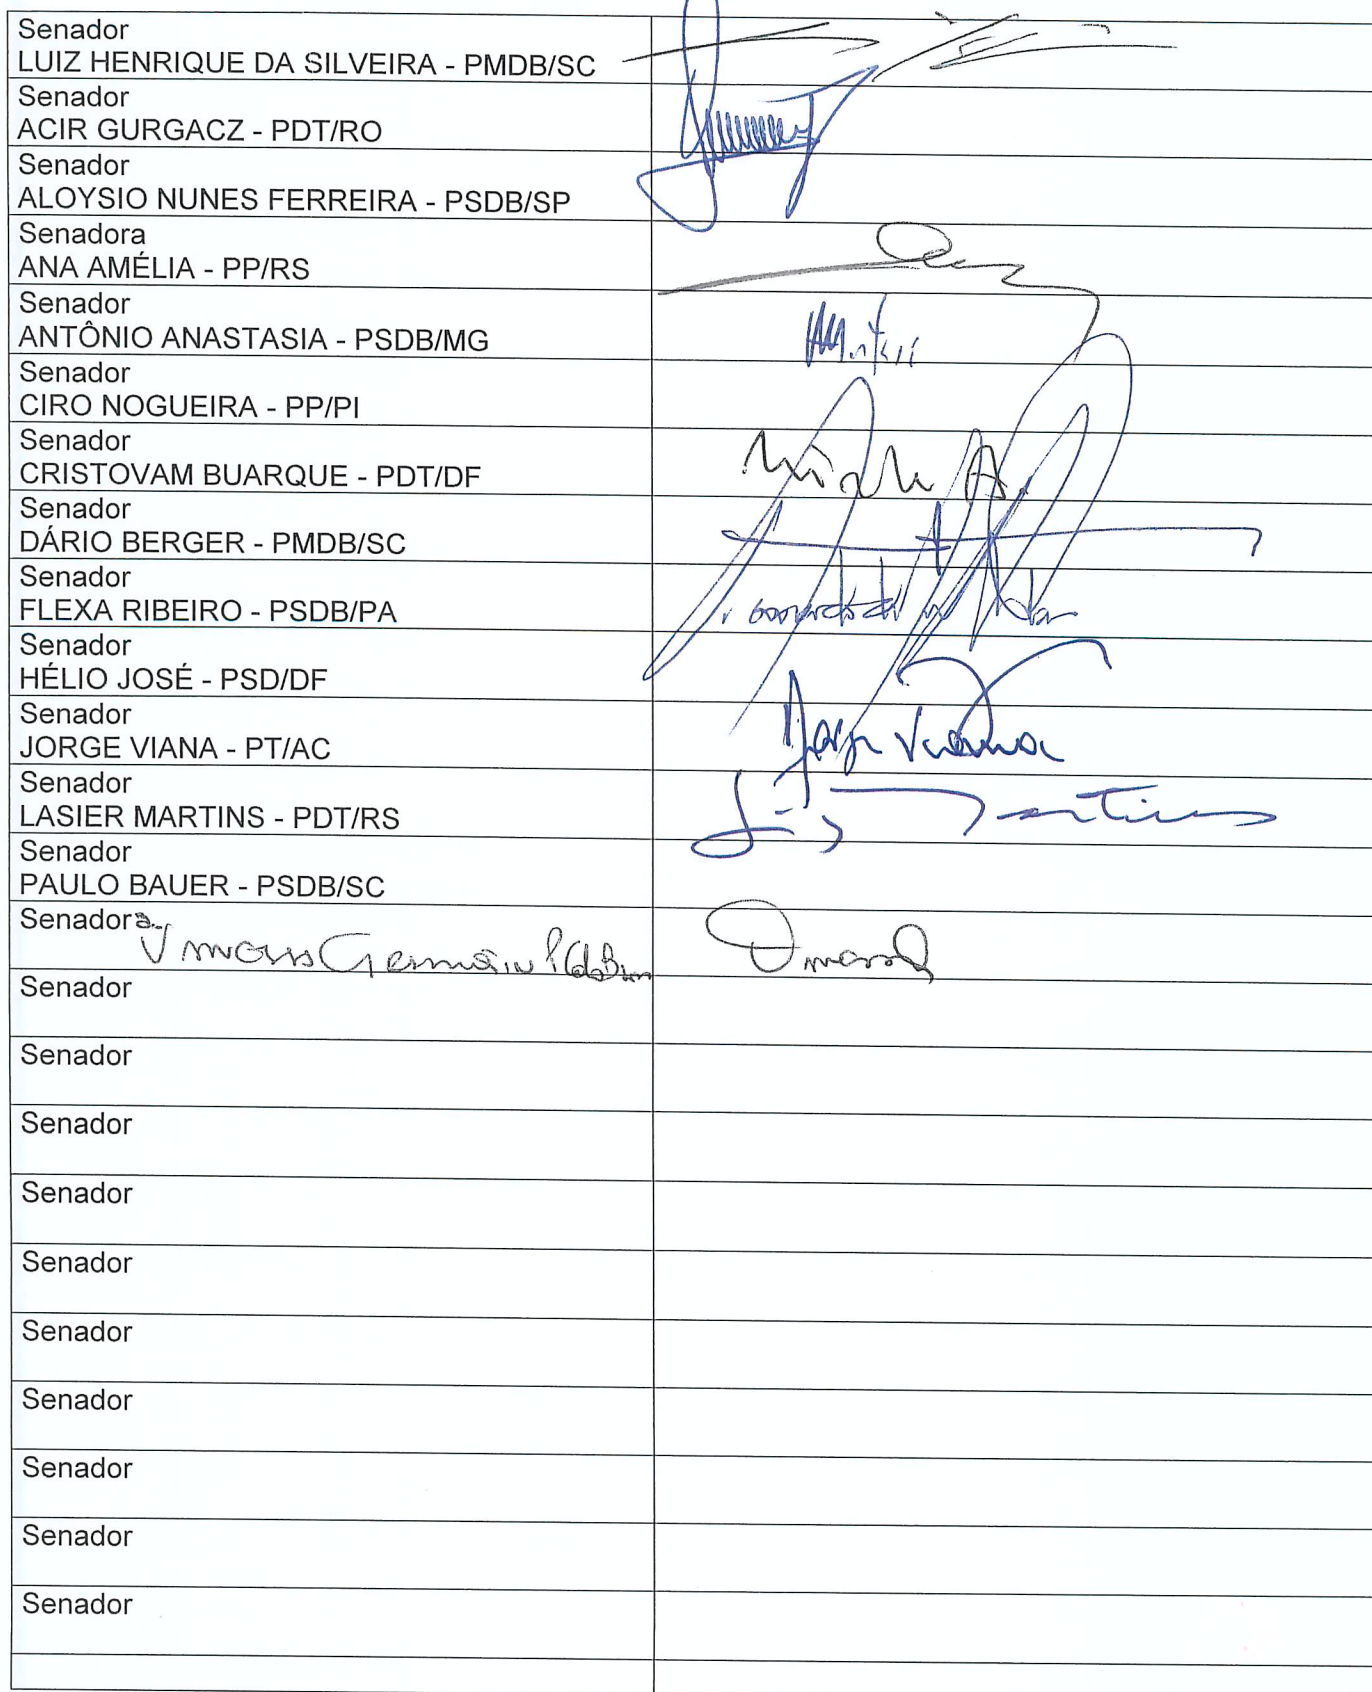 Senador
LUIZ HENRIQUE DA SILVEIRA - PMDB/SC
Senador
ACIR GURGACZ - PDT/RO
Senador
ALOYSIO NUNES FERREIRA - PSDB/SP
Senadora
ANA AMÉLIA - PP/RS
Senador
ANTÔNIO ANASTASIA - PSDB/MG
Senador
CIRO NOGUEIRA - PP/PI
Senador
CRISTOVAM BUARQUE - PDT/DF
Senador
DÁRIO BERGER - PMDB/SC
Senador
FLEXA RIBEIRO - PSDB/PA
Senador
HÉLIO JOSÉ - PSD/DF
Senador
JORGE VIANA - PT/AC
Jorge Viana
Senador
LASIER MARTINS - PDT/RS
Martins
Senador
PAULO BAUER - PSDB/SC
Senadora
Senador
Senador
Senador
Senador
Senador
Senador
Senador
Senador
Senador
Senador